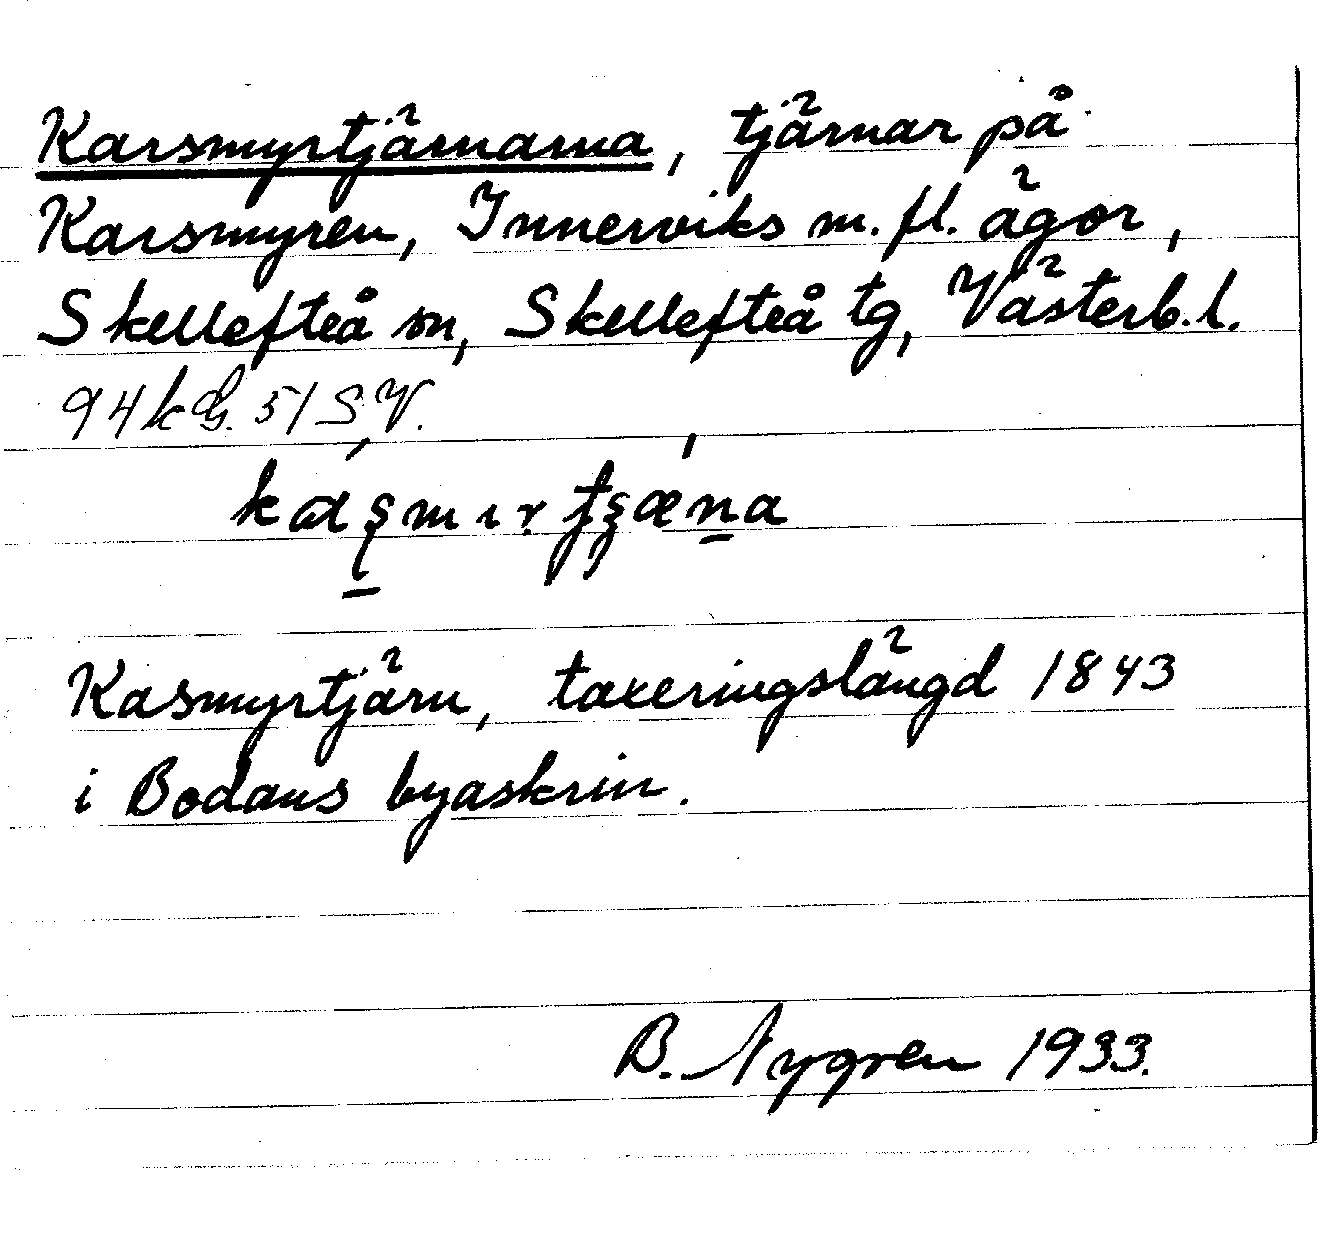 Karsmyrtjärnarna, tjärnar på
Karsmyren, Innerviks m. fl. ägor,
Skellefteå sn, Skellefteå tg, Västerb. l.
51 S.V.
Kasmyrtjärn, taxeringslängd 1843
i Bodans byaskrin.
B. Nygren 1933.